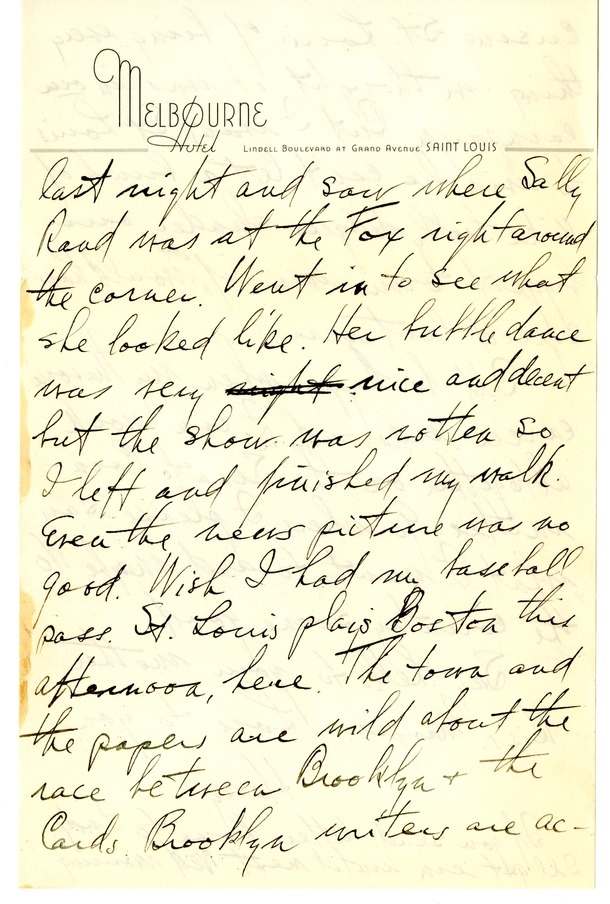 MELBOURNE
Hotel LINDELL BOULEVARD AT GRAND AVENUE SAINT LOUIS
last night and saw where Sally
Rand was at the Fox right around
the corner. Went in to see what
she looked like. Her bubble dance
was very night nice and decent
but the show was rotten so
I left and finished my walk.
Even the news picture was no
good. Wish I had my baseball
pass. St. Louis plais Boston this
afternoon, here. The town and
the papers are wild about the
race between Brooklyn + the
Cards. Brooklyn writers are ac-